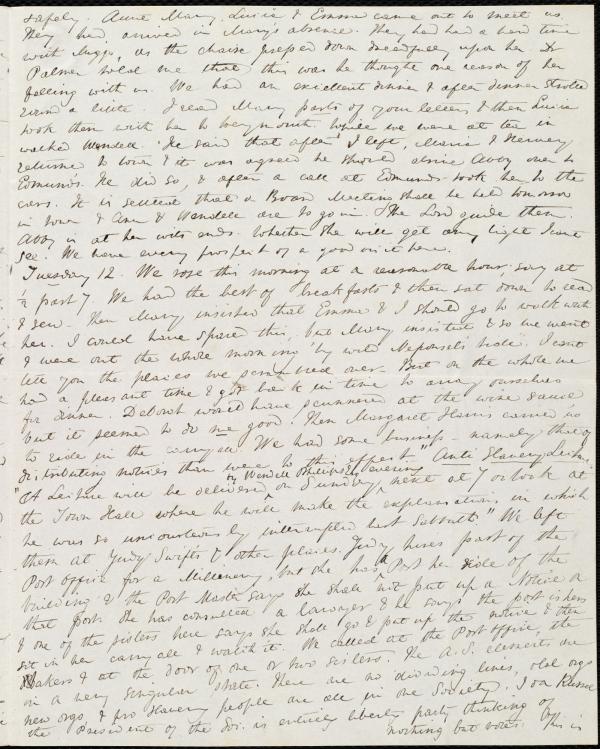 safely. Anne Mary, Lucia & Emma came out to meet us.
They had arrived in Mary's absence. They had had a hard time
with as the chaise pressed down dreadfully upon her. Dr
Palmer told me that this was he thought one reason of her
falling with us. We had an excellent dinner & after dinner strolled
round a little. I read Mary parts of your letters & then Lucia
took them with her to Weymouth. While we were at tea in
walked Wendell. He said that after I left, Maria & Henry
returned to town & it was agreed he should drive Abby over to
Edmund's. He did so, & after a call at Edmund's took her to the
cars. It is settled that a Board Meeting shall be held tomorrow
in town & Ann & Wendell are to go in. The Lord guide them.
Abby is at her wits ends. Whether she will get any light I can't
see. We have every prospect of a good one here.
Tuesday 12. We rose this morning at a reasonable hour, say at
½ past 7. We had the best of breakfasts & then sat down to read
& sew. Then Mary insisted that Emma & I should go to walk with
her. I could have spared this, but Mary insisted & so we went
& were out the whole morning by wild Neponset's side. I can't
tell you the places we scrambled over. But on the whole we
had a pleasant time & got back in time to array ourselves
for dinner. Deborah would have scunnered at the wine sauce
but it seemed to do me good. Then Margaret Harris carried us
to ride in the carryall. We had some business - namely that of
distributing notices. They were to this effect "Anti Slavery Lecture.
A Lecture will be delivered by Wendell Phillips Esq on Sunday evening next at 7 o'clock at
the Town Hall where he will make the explanations in which
he was so uncourteously interrupted last Sabbath." We left
them at Judy Swifts & other places. Judy hires part of the
Post office for a Millenery, but the Post side of the
building & the Post Master says she shall not put up a Notice on
that post. She has consulted a lawyer & he says the post is hers
& one of the sisters here says she shall go & put up the notice & then
sit in her carryall & watch it. We called at the Post office, the
Bakers & at the door of one or two sisters. The A.S. elements are
in a very singular state. There are no dividing lines, old orgs
new orgs, & pro slavery people are all in one Society. Ira Russell
the President of the Soc. is entirely liberty party, thinking of
nothing but votes. This is